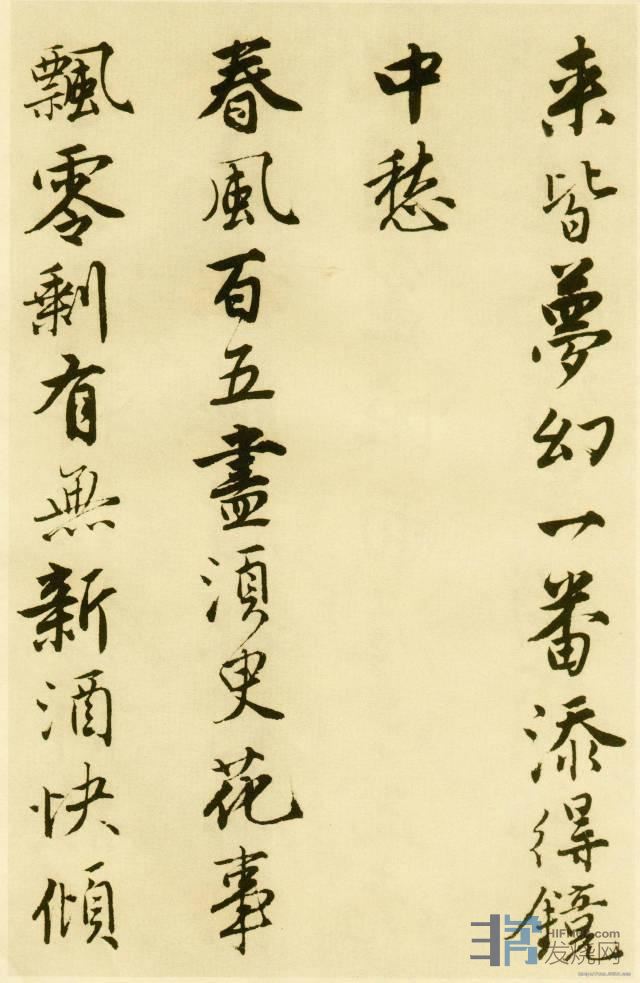 来皆夢幻一番添得鏡
中愁
春風百五盡須臾花事
飄零剩有無新酒快傾
HIFI168.com
发烧网